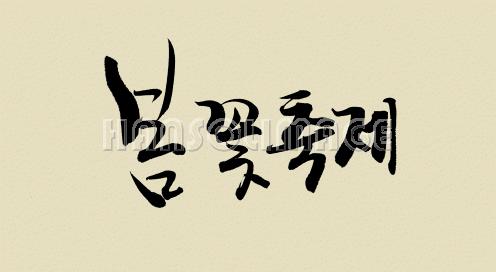 봄꽃축제